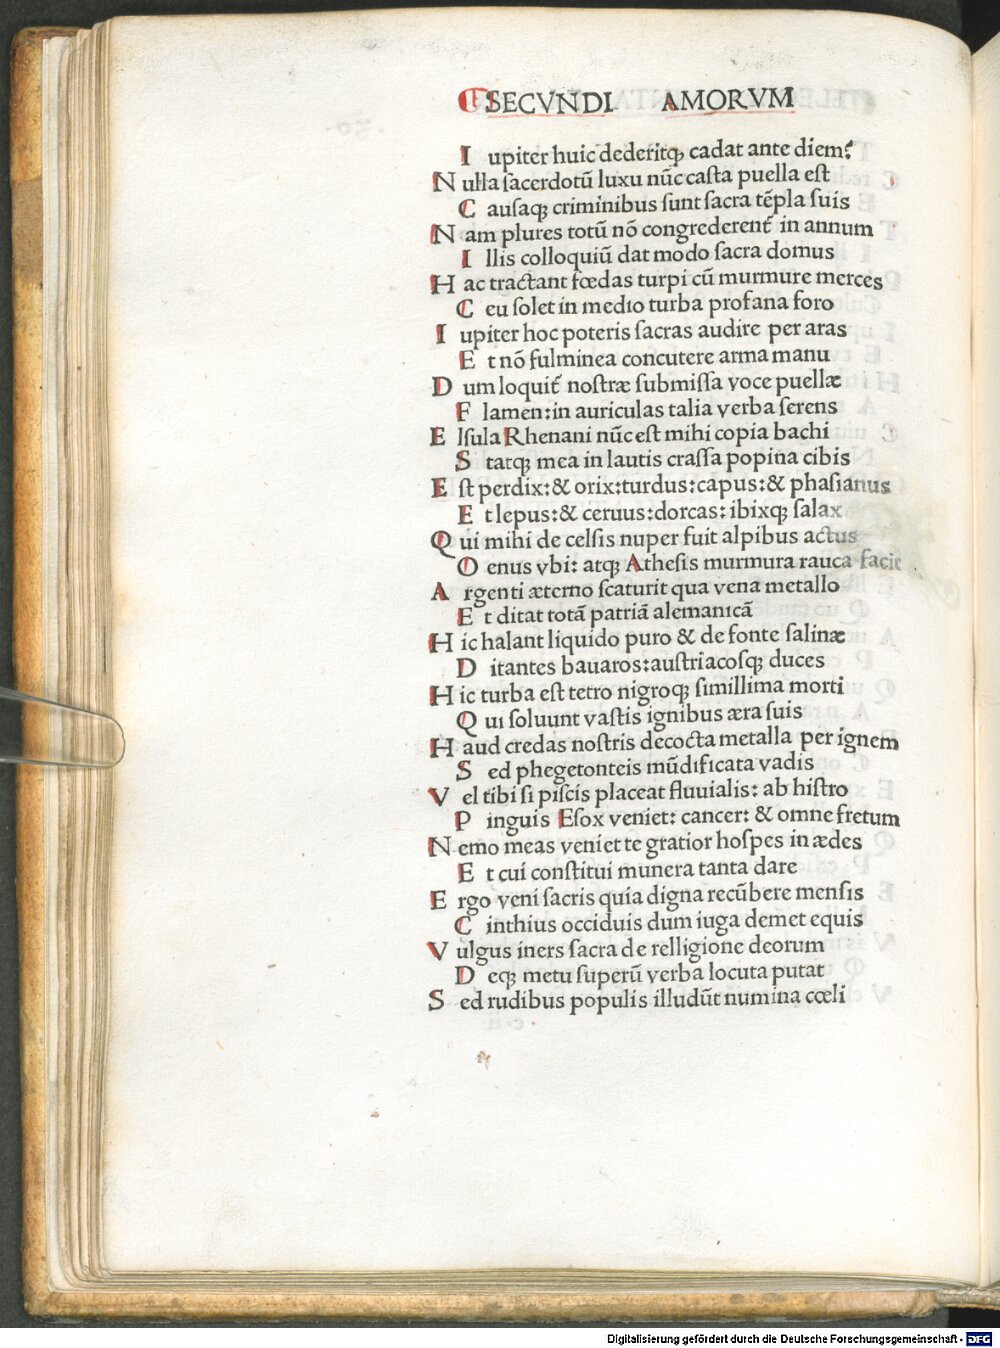 SECVNDI AMORVM
Iupiter huic dederitq; cadat ante diem?
Nulla sacerdotū luxu nūc casta puella est
Causaq; criminibus sunt sacra tēpla suis
Nam plures totū nō congrederent᷑ in annum
Illis colloquiū dat modo sacra domus
Hac tractant fœdas turpi cū murmure merces
Ceu solet in medio turba profana foro
Iupiter hoc poteris sacras audire per aras
Et nō fulminea concutere arma manu
Dum loquit᷑ nostræ submissa voce puellæ
Flamen: in auriculas talia verba serens
Elsula Rhenani nūc est mihi copia bachi
Statq; mea in lautis crassa popina cibis
Est perdix: & orix: turdus: capus: & phasianus
Et lepus: & ceruus: dorcas: ibixq; salax
Qui mihi de celsis nuper fuit alpibus actus
Oenus vbi: atq; Athesis murmura rauca facit
Argenti æterno scaturit qua vena metallo
Et ditat totā patriā alemanicā
Hic halant liquido puro & de fonte salinæ
Ditantes bauaros: austriacosq; duces
Hic turba est tetro nigroq; simillima morti
Qui soluunt vastis ignibus æra suis
Haud credas nostris decocta metalla per ignem
Sed phegetonteis mūdificata vadis
Vel tibi si piscis placeat fluuialis: ab histro
Pinguis Esox veniet: cancer: & omne fretum
Nemo meas veniet te gratior hospes in ædes
Et cui constitui munera tanta dare
Ergo veni sacris quia digna recūbere mensis
Cinthius occiduis dum iuga demet equis
Vulgus iners sacra de relligione deorum
Deq; metu superū verba locuta putat
Sed rudibus populis illudūt numina cœli
Digitalisierung gefördert durch die Deutsche Forschungsgemeinschaft - DFG